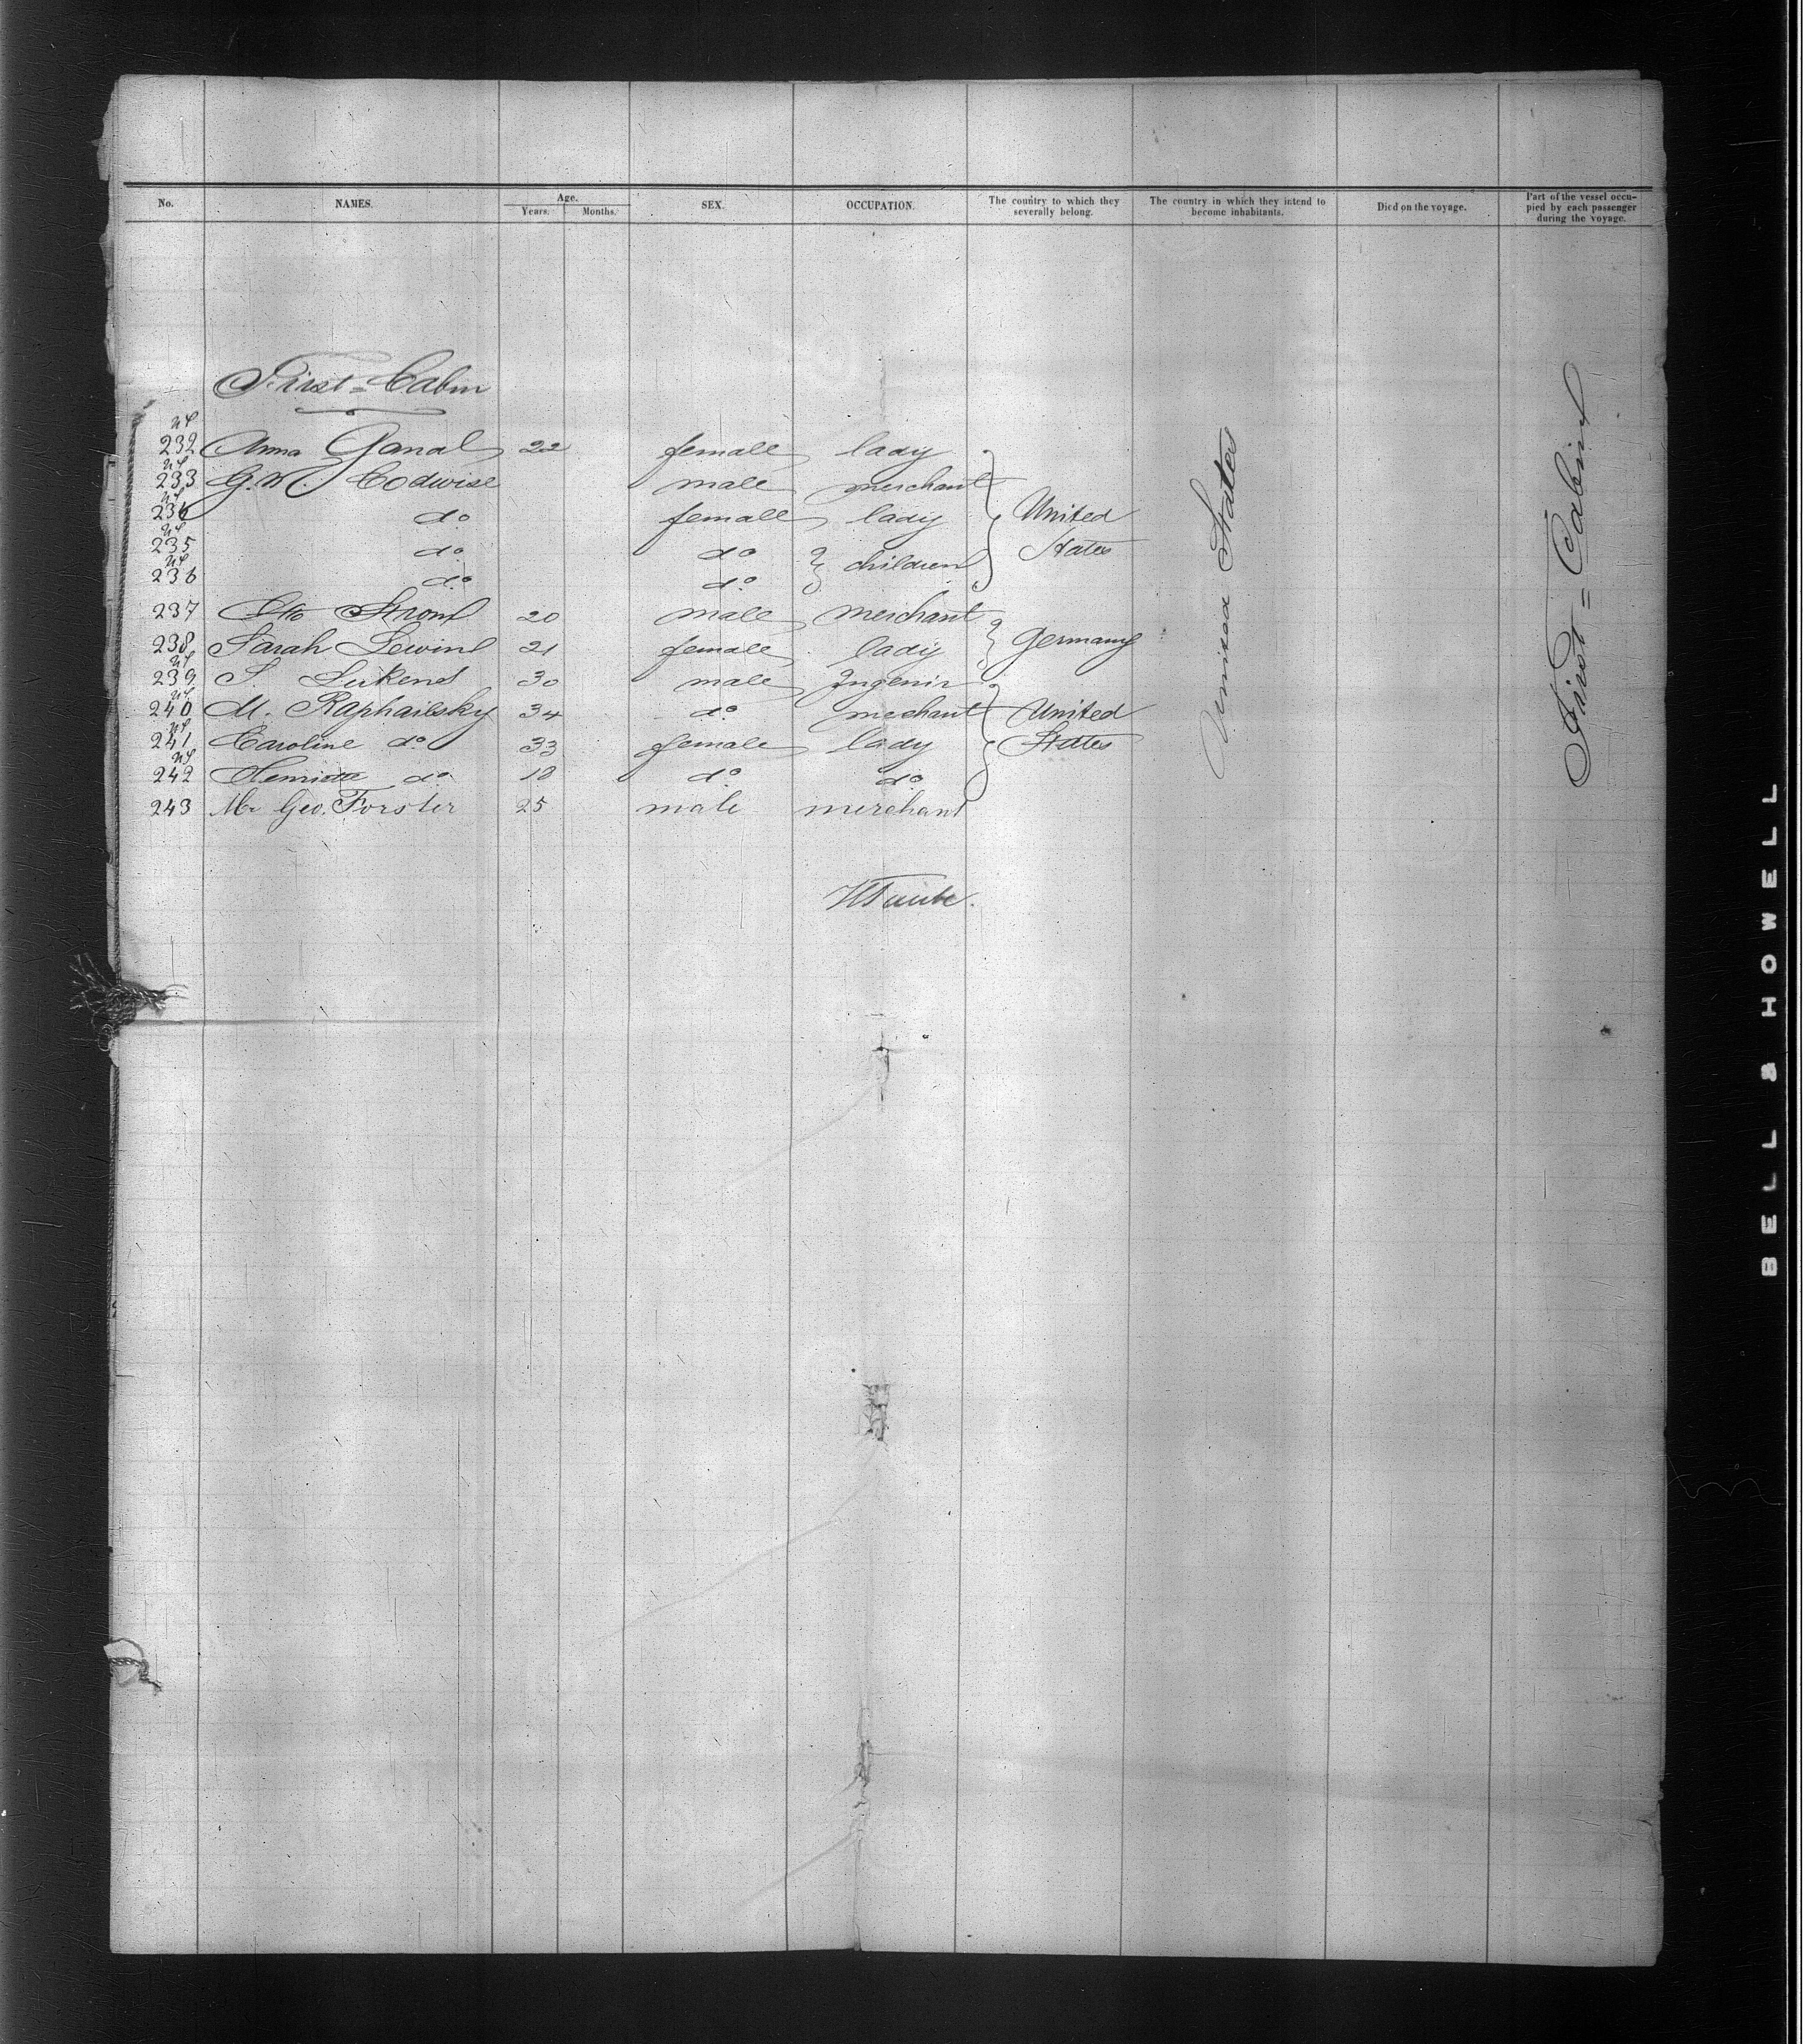 No. NAMES. Age. Years. Months. SEX. OCCUPATION. The country to which they severally belong. The country in which they intend to become inhabitants. Died on the voyage. Part of the vessel occu-pied by each passenger during the voyage.
First = Cabin
US
232 Anna Ganal 22 female lady
US
233 G. W. Codwise male merchant
US
234 do female lady United
US
235 do do children States
US
236 do do
237 Otto 20 male merchant
238 Sarah Lewine 21 female lady Germany
US
239 S. 30 male Ingenir
US
240 M. Raphailsky 34 do mechant United
US
241 Caroline do 33 female lady States
US
242 Henriette do 18 do do
243 Mr Geo. Forster 25 male merchant
United States
First = Cabin
HTaube.
BELL & HOWELL